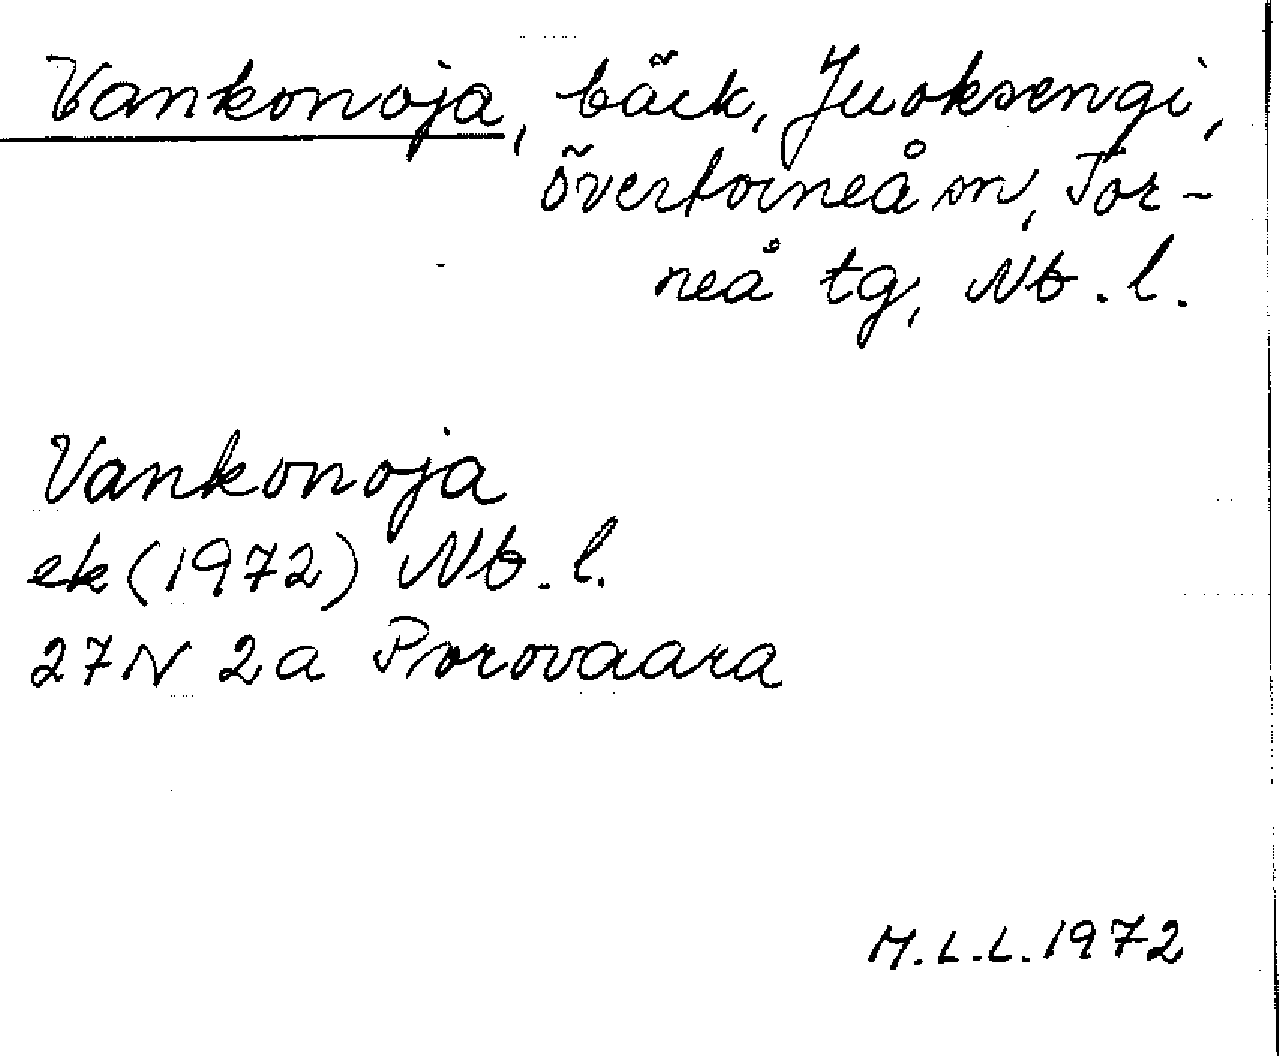 Vankonoja, bäck, Juoksengi,
Övertorneå sn, Tor-
neå tg, Nb. l.
Vankonoja
ek (1972) Nb. l.
27N 2a Porovaara
M.L.L. 1972